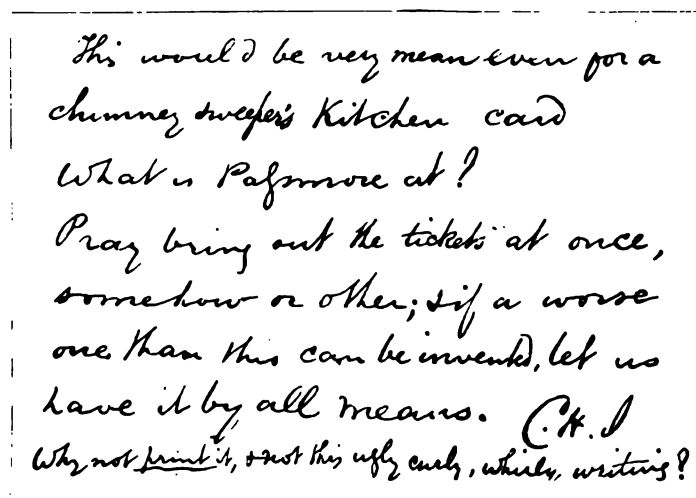 This would be very mean even for a
chimney sweeper's Kitchen card
What is Passmore at?
Pray bring out the tickets at once,
somehow or other; & if a worse
one than this can be invented, let us
have it by all means. C.H.S
Why not print it, & not this ugly curly, whirly, writing?